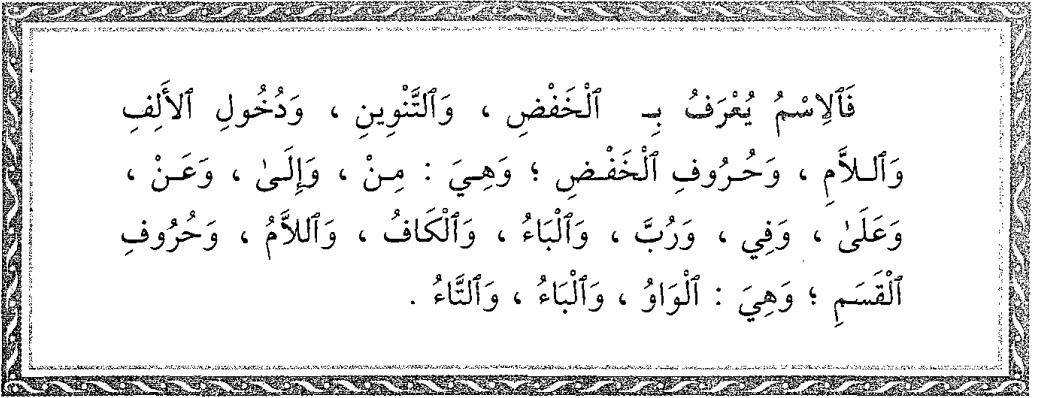 فَٱلِاسْمُ يُعْرَفُ بِـ ٱلْخَفْضِ ، وَٱلتَّنْوِينِ ، وَدُخُولِ ٱلأَلِفِ
وَٱلـلاَّمِ ، وَحُـرُوفِ ٱلْخَفْـضِ ؛ وَهِـيَ : مِـنْ ، وَإِلَـىٰ ، وَعَـنْ ،
وَعَلَىٰ ، وَفِي ، وَرُبَّ ، وَٱلْبَاءُ ، وَٱلْكَافُ ، وَٱللاَّمُ ، وَحُرُوفِ
ٱلْقَسَمِ ؛ وَهِيَ : ٱلْوَاوُ ، وَٱلْبَاءُ ، وَٱلتَّاءُ .